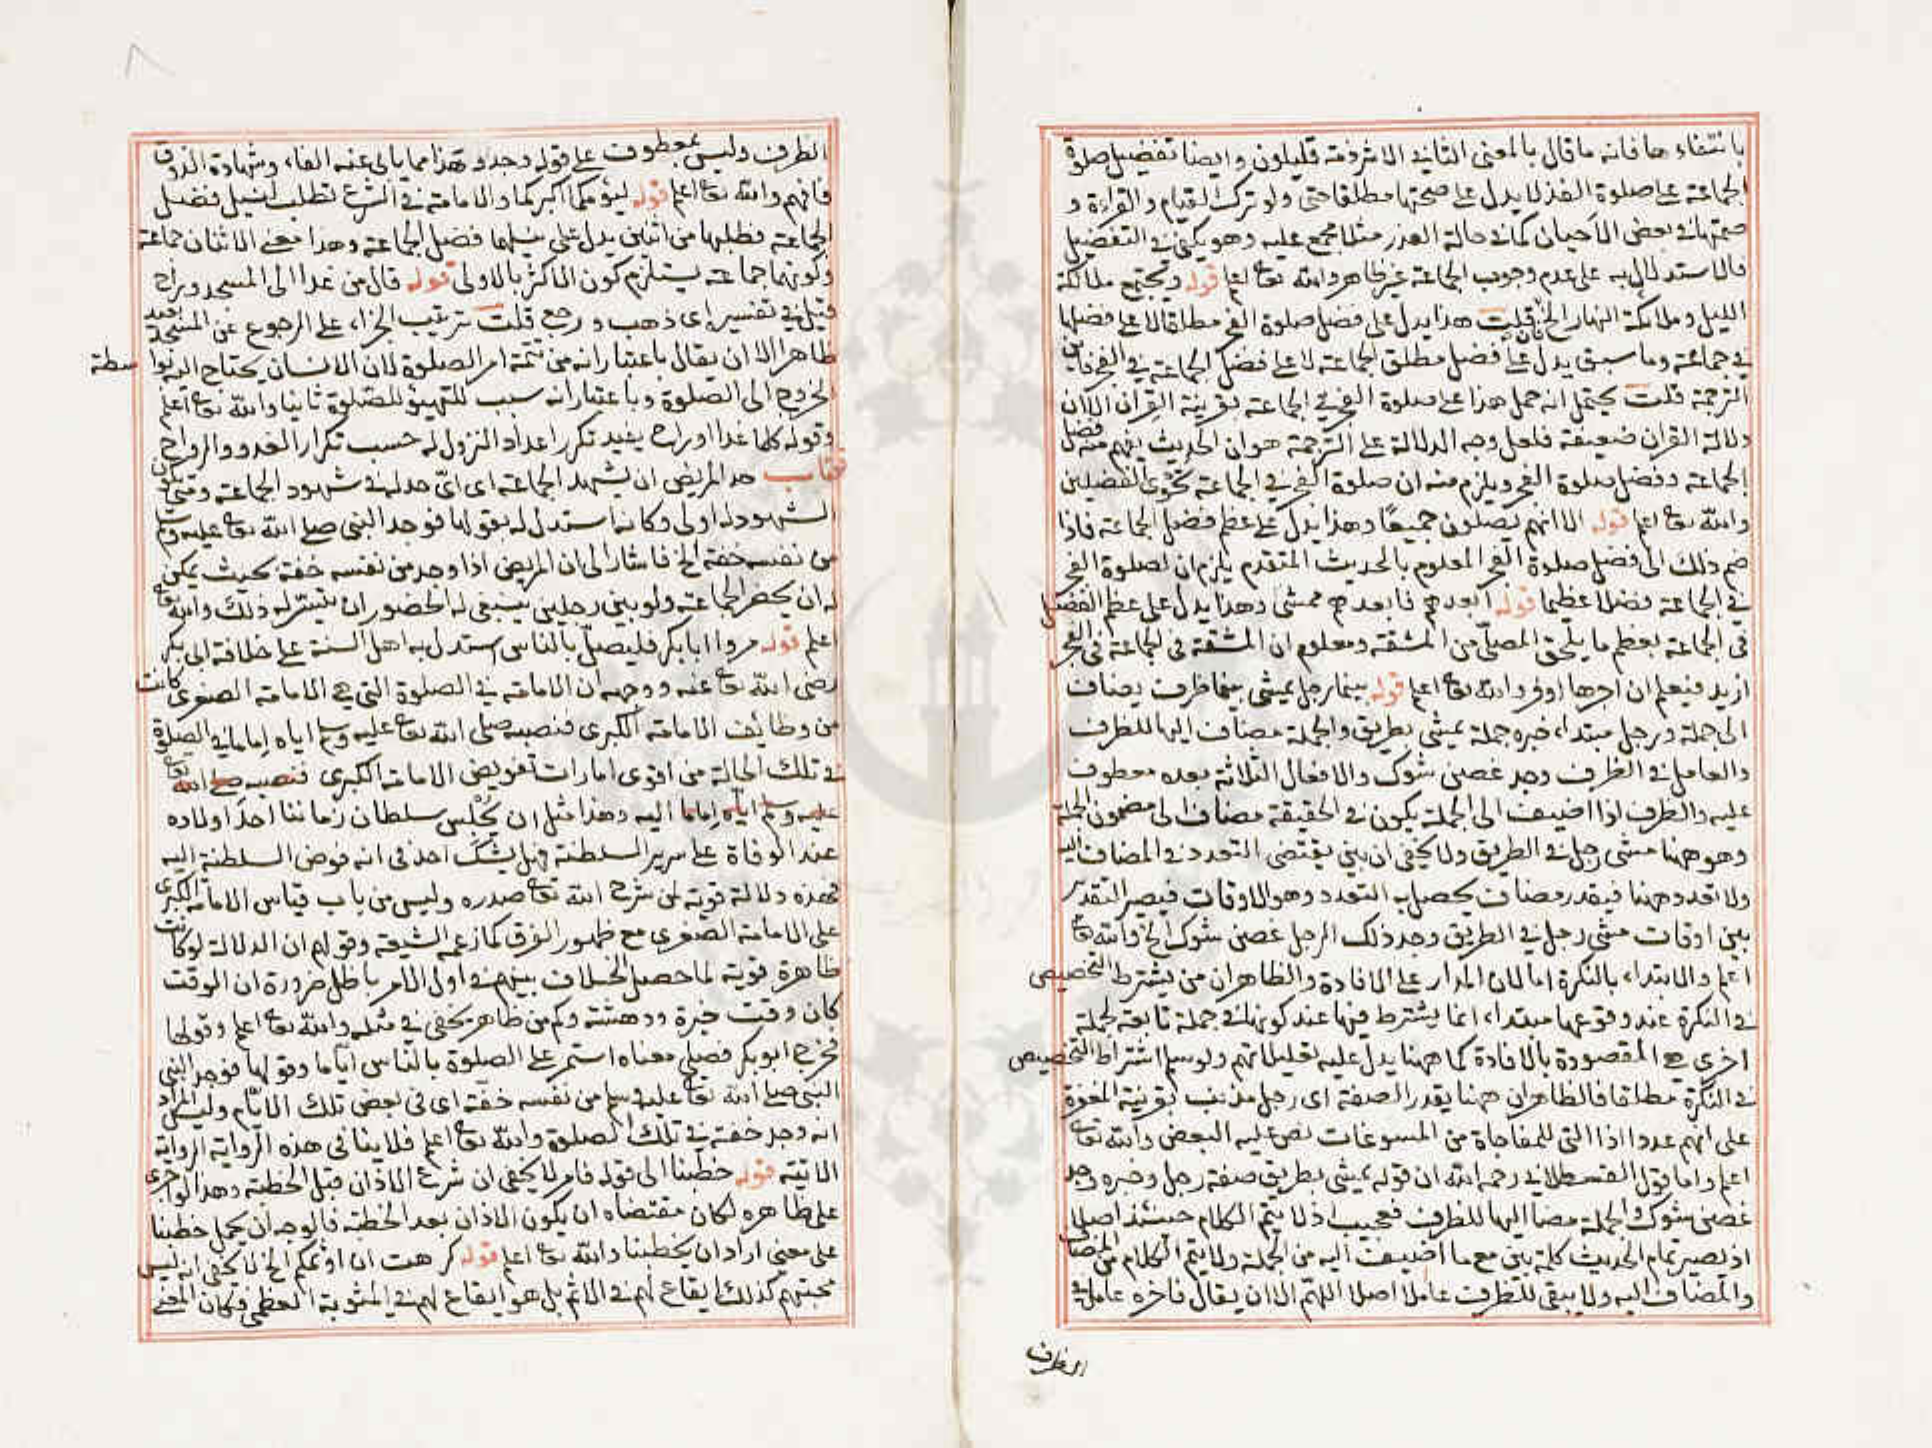 بانتفاءها فانه ما قال بالمعنى الثاني الا شرذمة قليلون وايضا تفضيل صلوة
الجماعة على صلوة الفذ لا يدل على صحتها مطلقا حتى ولو ترك القيام والقراءة و
صحتها في بعض الأحيان كما في حالة العذر مثلا مجمع عليه وهو يكفي في التفضيل
فالاستدلال به على عدم وجوب الجماعة غير ظاهر والله تعا اعلم قوله وتجتمع ملائكة
الليل وملائكة النهار الخ فان قلت هذا يدل على فضل صلوة الفجر مطلقا لا على فضلها
في جماعة وما سبق يدل على فضل مطلق الجماعة لا على فضل الجماعة في الفجر فاين
الترجمة قلت يحتمل انه حمل هذا على صلوة الفجر في الجماعة بقرينة القران الا ان
دلالة القران ضعيفة فلعل وجه الدلالة على الترجمة هو ان الحديث يفهم منه فضل
الجماعة وفضل صلوة الفجر ويلزم منه ان صلوة الفجر في الجماعة تحوى الفضيلين
والله تعا اعلم قوله الا انهم يصلون جميعًا وهذا يدل على عظم فضل الجماعة فاذا
ضم ذلك الى فضل صلوة الفجر المعلوم بالحديث المتقدم يلزم ان لصلوة الفجر
في الجماعة فضلا عظيما قوله ابعدهم فابعدهم ممشى وهذا يدل على عظم الفضل
في الجماعة بعظم ما يلحق المصلي من المشقة ومعلوم ان المشقة في الجماعة في الفجر
ازيد فيعلم ان اجرها اوفر والله تعا اعلم قوله بينما رجل يمشى بينما ظرف يضاف
الى جملة ورجل مبتداء خبره جملة يمشي بطريق والجملة مضاف اليها للظرف
والعامل في الظرف وجد غصن شوك والافعال الثلاثة بعده معطوف
عليه والظرف اذا اضيف الى الجملة يكون في الحقيقة مضافا الى مضمون الجملة
وهو ههنا مشى رجل في الطريق ولا يخفى ان بين يقتضى التعدد في المضاف اليه
ولا تعدد ههنا فيقدر مضاف يحصل به التعدد وهو الاوقات فيصير التقدير
بين اوقات مشى رجل في الطريق وجد ذلك الرجل غصن شوك الخ والله تعا
اعلم والابتداء بالنكرة اما لان المدار على الافادة والظاهر ان من يشترط التخصيص
في النكرة عند وقوعها مبتداء انما يشترط فيها عند كونها في جملة تابعة لجملة
اخرى هي المقصودة بالافادة كما ههنا يدل عليه تعليلاتهم ولو سلم اشتراط التخصيص
في النكرة مطلقا فالظاهر ان ههنا يقدر الصفة اى رجل مذنب بقرينة المغفرة
على انهم عدوا اذا التى للمفاجاة من المسوغات نص عليه البعض والله تعا
اعلم واما قول القسطلاني رحمه الله ان قوله يمشى بطريق صفة رجل وخبره وجد
غصن شوك والجملة مضا اليها للظرف فعجيب اذ لا يتم الكلام حينئذ اصلا
اذ يصير تمام الحديث كلمة بين مع ما اضيفت اليه من الجملة ولا يتم الكلام من المضاف
والمضاف اليه ولا يبقى للظرف عاملا اصلا اللهم الا ان يقال فاخره عامل في
الظرف
الظرف وليس بمعطوف على قوله وجد وهذا مما يابى عنه الفاء وشهادة الذوق
فافهم والله تعا اعلم قوله ليؤمكما اكبركما والامامة في الشرع تطلب لنيل فضل
الجماعة فطلبها من اثنين يدل على نيلها فضل الجماعة وهذا معنى الاثنان جماعة
وكونهما جماعة يستلزم كون الاكثر بالاولى قوله قال من غدا الى المسجد وراح
قيل في تفسيره اى ذهب ورجع قلت ترتيب الجزاء على الرجوع عن المسجد بعيد
ظاهر الا ان يقال باعتبار انه من تتمة امر الصلوة لان الانسان يحتاج اليه بواسطة
الخروج الى الصلوة وباعتبار انه سبب للتهيؤ للصلوة ثانيا والله تعا اعلم
وقوله كلما غدا او راح يفيد تكرر اعداد النزول له حسب تكرار الغدو والرواح
باب حد المريض ان يشهد الجماعة اى اىّ حد له في شهود الجماعة ومتى يكون
الشهود له اولى وكانه استدل له بقولها فوجد النبي صلى الله تعا عليه وسلم
من نفسه خفة الخ فاشار الى ان المريض اذا وجد من نفسه خفة بحيث يمكن
له ان يحضر الجماعة ولو بين رجلين ينبغى له الحضور ان تيسر له ذلك والله تعا
اعلم قوله مروا ابابكر فليصل بالناس استدل به اهل السنة على خلافة ابى بكر
رضى الله تعا عنه ووجهه ان الامامة في الصلوة التي هي الامامة الصغرى كانت
من وظائف الامامة الكبرى فنصبه صلى الله تعا عليه وسلم اياه اماما في الصلوة
في تلك الحالة من اقوى امارات تفويض الامامة الكبرى فنصبه صلى الله تعا
عليه وسلم اياه اماما اليه وهذا مثل ان يجلس سلطان زماننا احد اولاده
عند الوفاة على سرير السلطنة فهل يشك احد في انه فوض السلطنة اليه
فهذه دلالة قوية لمن شرح الله تعا صدره وليس من باب قياس الامامة الكبرى
على الامامة الصغرى مع ظهور الفرق كما زعمه الشيعة وقولهم ان الدلالة لو كانت
ظاهرة قوية لما حصل الخلاف بينهم في اول الامر باطل ضرورة ان الوقت
كان وقت حيرة ودهشة وكم من ظاهر يخفى في مثله والله تعا اعلم وقولها
فخرج ابو بكر فصلى معناه استمر على الصلوة بالناس اياما وقولها فوجد النبي
النبي صلى الله تعا عليه وسلم من نفسه خفة اى في بعض تلك الايام وليس المراد
انه وجد خفة في تلك الصلوة والله تعا اعلم فلا ينافى هذه الرواية الرواية
الاتية قوله خطبنا الى قوله فامر لا يخفى ان شرع الاذان قبل الخطبة وهذا لو اجرى
على ظاهره لكان مقتضاه ان يكون الاذان بعد الخطبة فالوجه ان يحمل خطبنا
على معنى اراد ان يخطبنا والله تعا اعلم قوله كرهت ان اؤثمكم الخ لا يخفى انه ليس
مجيئهم كذلك ايقاع لهم في الاثم بل هو ايقاع لهم في المثوبة العظمى فكان المعنى